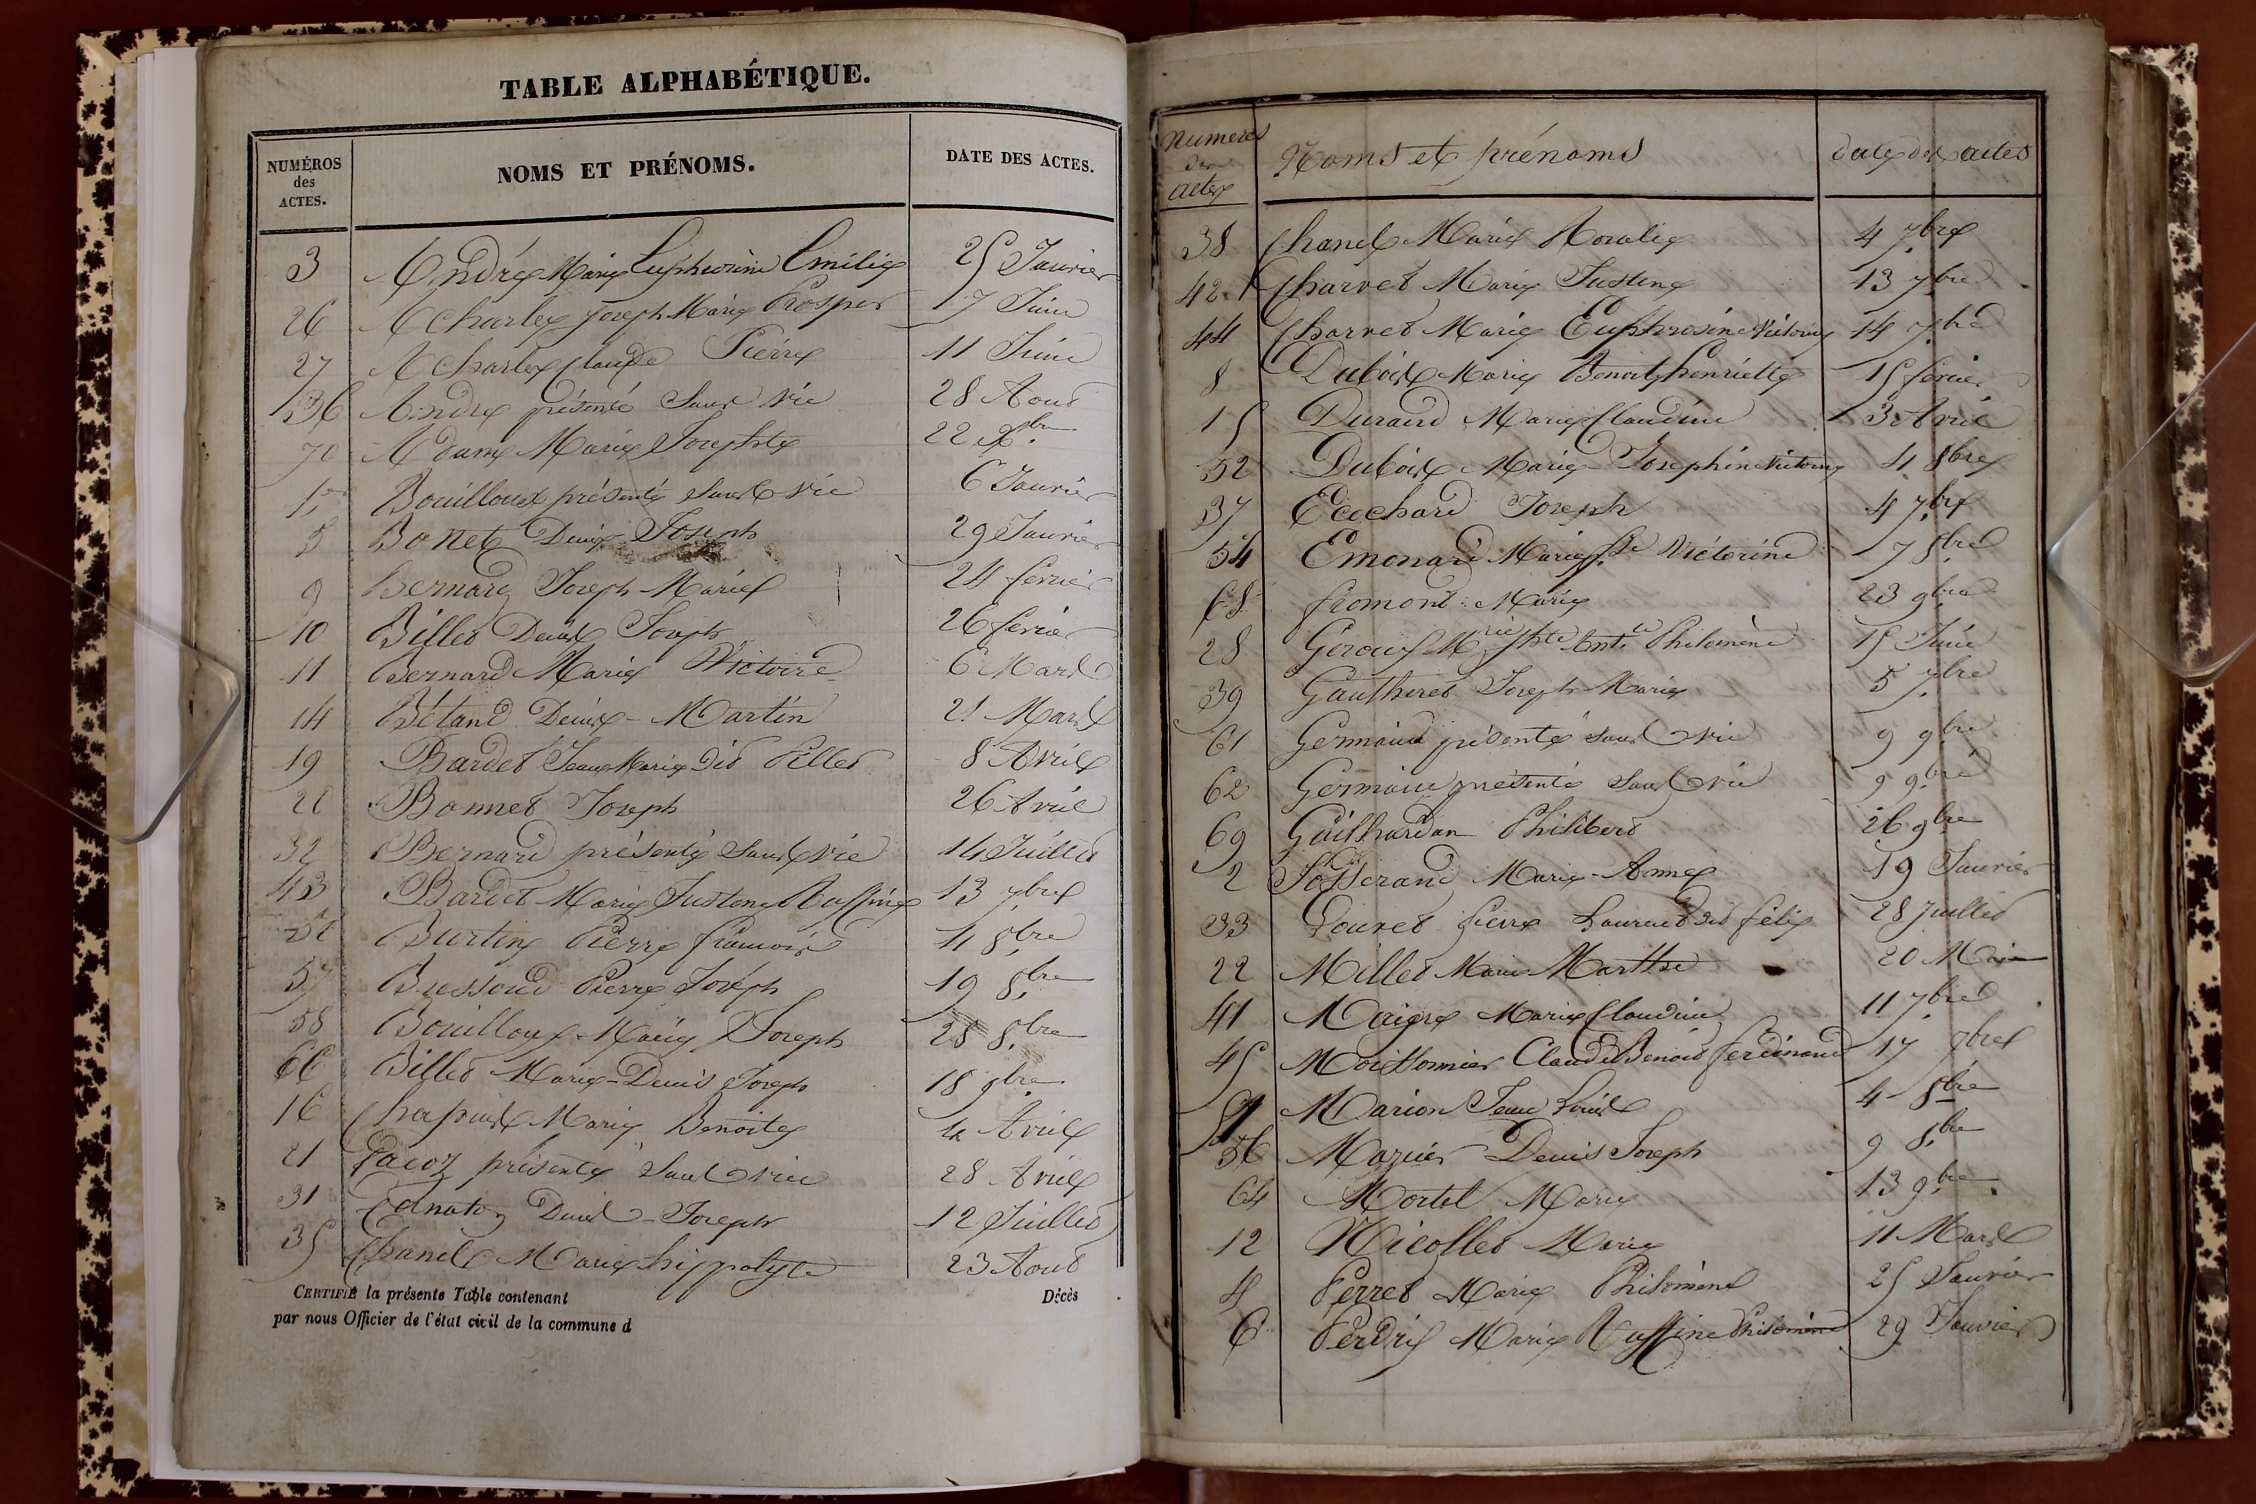 TABLE ALPHABÉTIQUE.
NUMÉROS des ACTES. NOMS ET PRÉNOMS. DATE DES ACTES.
3 André Marie Euphrosine Emilie 25 Janvier
26 Acharles Joseph Marie Prosper 17 Juin
27 Acharles Claude Pierre 11 Juin
36 André présenté Sans vie 28 Aout
70 Adam Marie Josephte 22 Xbre
1er Bouilloux présenté Sans vie 6 Janvier
5 Bonet Denis Joseph 29 Janvier
9 Bernard Joseph Marie 24 février
10 Billet Denis Joseph 26 février
11 Bernard Marie Victoire 6 Mars
14 Bétand Denis Martin 21 Mars
19 Bardet Jean Marie dit Pillet 8 Avril
20 Bonnet Joseph 26 Avril
32 Bernard présenté Sans vie 14 Juillet
43 Bardet Marie Justine Ruffine 13 7bre
Burtin Pierre françois 4 8bre
57 Bussoud Pierre Joseph 19 8bre
58 Bouilloux Marie Joseph 28 8bre
66 Billet Marie Denis Joseph 18 9bre
16 Chapuis Marie Benoite 4 Avril
21 présenté Sans vie 28 Avril
31 Denis Joseph 12 Juillet
35 Chanel Marie hippolyte 23 Aout
CERTIFIÉ la présente Table contenant Décès
par nous Officier de l'état civil de la commune d
Numeros des actes Noms et prénoms date des actes
38 Chanel Marie Rosalie 4 7bre
42 Charvet Marie Justine 13 7bre
44 Charvet Marie Euphrosine Victoire 14 7bre
8 Dubois Marie Benoit henriette 15 février
15 Durand Marie Claudine 3 Avril
52 Dubois Marie Josephine Victoire 4 8bre
37 Ecochard Joseph 4 7bre
54 Emonard Marie fse Victorine 7 8bre
68 fromont Marie 23 9bre
28 Philomène 15 Juin
39 Gautheret Joseph Marie 5 7bre
61 Germain présenté sans vie 9 9bre
62 Germain présenté sans vie 9 9bre
69 Gailhardon Philibert 26 9bre
2 Josserand Marie Anne 19 Janvier
33 Louvet Pierre Laurent dit félix 28 Juillet
22 Millet Marie Marthe 20 Mai
41 Maigre Marie Claudine 11 7bre
45 Moissonnier Claude Benoit ferdinand 17 7bre
51 Marion Jean Louis 4 8bre
56 Mazuier Denis Joseph 9 8bre
64 Mortel Marie 13 9bre
12 Nicollet Marie 11 Mars
4 Perret Marie Philomène 25 Janvier
6 Perdrix Marie Ruffine Philomène 29 Janvier